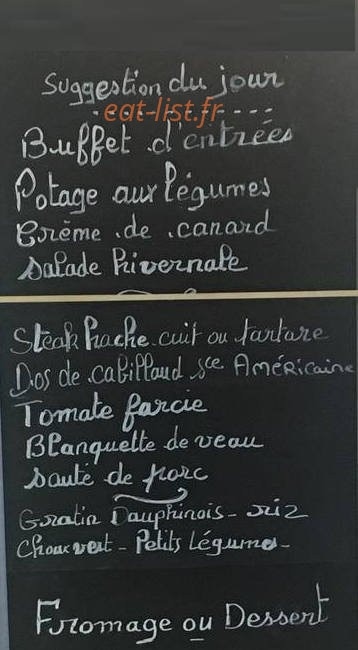 Suggestion du jour
eat-list.fr
Buffet d'entrées
Potage aux légumes
Crème de canard
Salade hivernale
Steak hache cuit ou tartare
Dos de cabillaud sce Américaine
Tomate farcie
Blanquette de veau
Sauté de porc
Gratin Dauphinois - riz
Choux vert - Petits Légumes -
Fromage ou Dessert